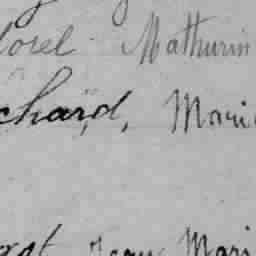 lorel Mathurin
chard, Mari
Jean Mari